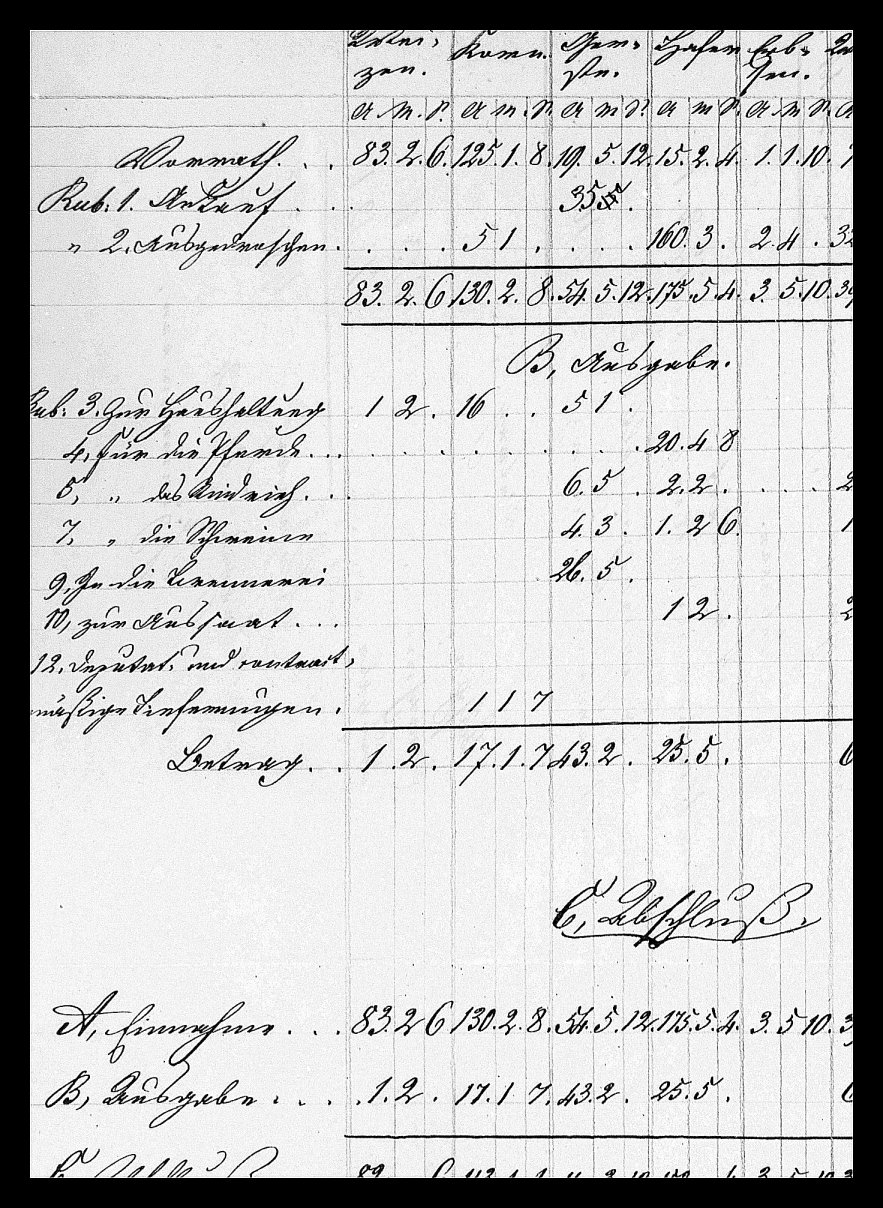 Wei- Korn. Ger- Hafer Erb-
zen. ste. sen.
A. M. P. A. M. P. A M P. A M P. A. M P. A
Vorrath. . . 83. 2. 6. 125. 1. 8. 19. 5. 12. 15. 2. 4. 1. 1. 10.
Rub: 1. Ankauf . . . 35
" 2. Ausgedroschen. . . . . 5 1 . . . . . 160. 3 . 2. 4 . 32
83. 2. 6. 130. 2. 8. 54. 5. 12. 175. 5. 4. 3. 5. 10.
B, Ausgabe.
Rub: 3. Zur Haushaltung 1 2 . 16 . . 5 1 .
4, für die Pferde. . . . . . . . . . . . 20. 4 8
5, " das Rindvieh. . . 6. 5 . 2. 2 . . . . . 2
7, " die Schweine 4. 3 . 1. 2 6. 1
9, In die Brennerei 26. 5 .
10, zur Aussaat . . . 1 2 . 2
12. Deputat- und contract-
mäßige Lieferungen. 1 1 7
Betrag. . . 1 . 2 . 17. 1. 7 43. 2 . 25. 5 . 6
C, Abschluß.
A, Einnahme . . . 83. 2 6 130. 2. 8. 54. 5. 12. 175. 5. 4. 3. 5 10. 3
B, Ausgabe . . . . 1. 2 . 17. 1 7. 43. 2 . 25. 5 . 6